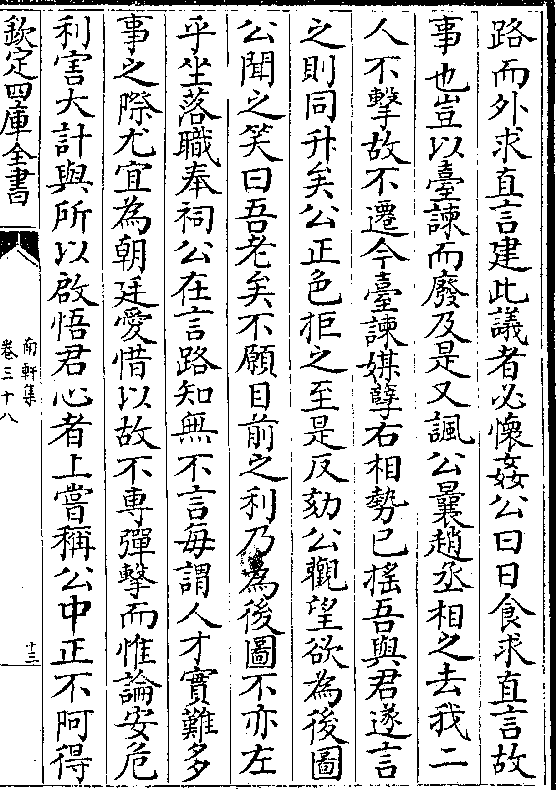 路而外求直言建此議者必懷姦公曰日食求直言故
事也豈以臺諫而廢及是又諷公曩趙丞相之去我二
人不擊故不遷今臺諫媒孽右相勢已揺吾與君遂言
之則同升矣公正色拒之至是反劾公觀望欲為後圖
公聞之笑曰吾老矣不願目前之利乃為後圖不亦左
乎坐落職奉祠公在言路知無不言毎謂人才實難多
事之際尤宜為朝廷愛惜以故不専彈擊而惟論安危
利害大計與所以啟悟君心者上嘗稱公中正不阿得
欽定四庫全書
南軒集
卷三十八
十三